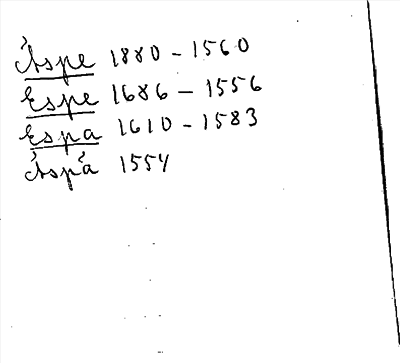 Åspe 1880 - 1560
Espe 1686 - 1556
Espa 1610 - 1583
Åspå 1554